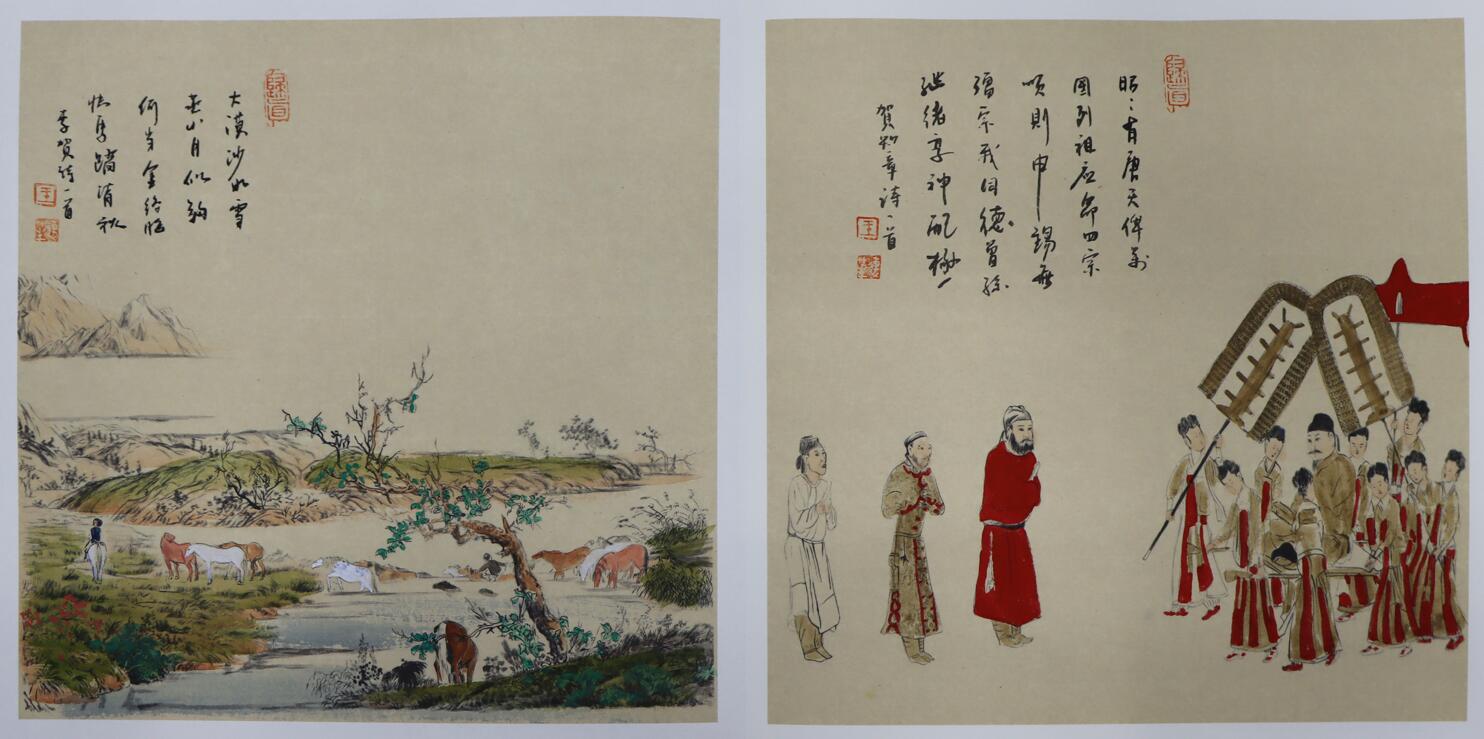 大漠沙如雪
燕山月似鈎
何当金络脑
快馬踏清秋
李贺诗一首
昭〻有唐天俾万
国列祖应命四宗
顺則申锡無
疆宗我同德曾孫
继绪享神配極
賀知章诗一首